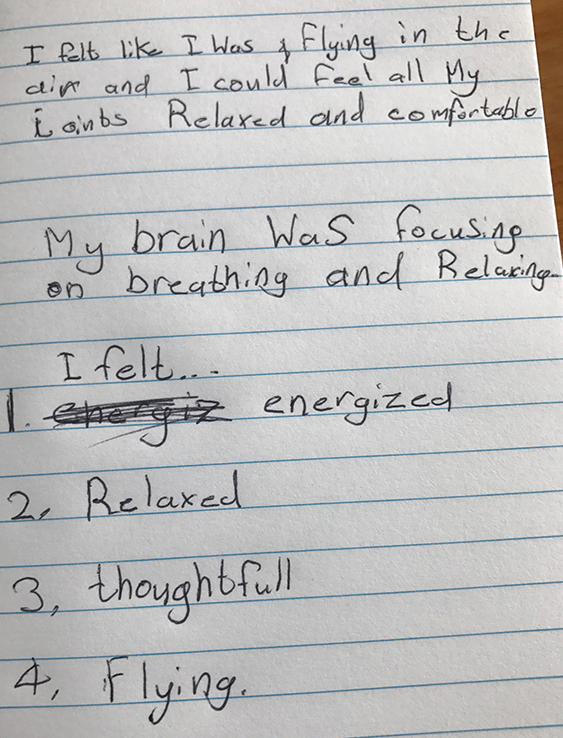 I felt like I was & Flying in the
air and I could Feel all My
joints Relaxed and comfortable
My brain was focusing
on breathing and Relaxing.
I felt...
1. energiz energized
2, Relaxed
3, thoughtfull
4, Flying.